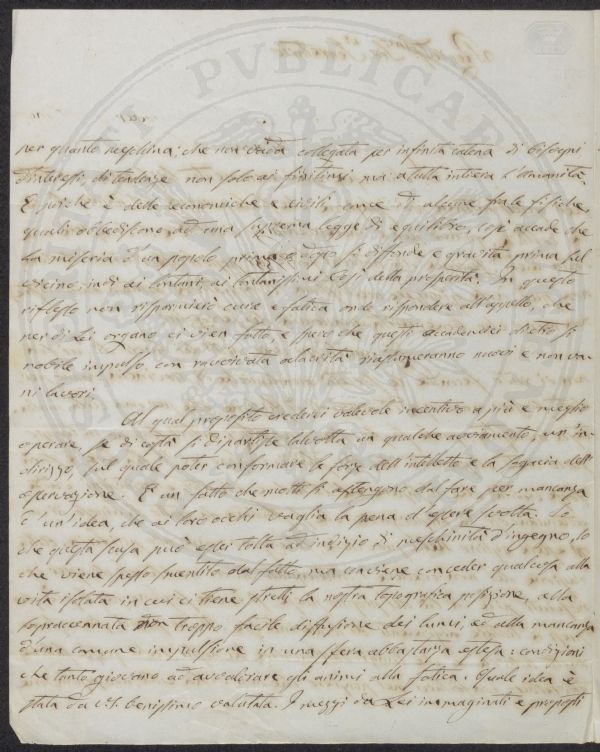 per quanto meschina; che non vada collegata per infinita catena di bisogni
d'interessi, di tendenze non solo ai finitimi, ma a tutta intiera l'umanità.
E poiché è delle economiche e civili, come di alcune fra le fisiche,
quali obbediscono ad una suprema legge di equilibro, così accade che
la miseria d'un popolo prima o dopo si diffonde e gravita prima sul
vicino, indi ai lontani, ai lontanissimi. Così della prosperità. In questo
riflesso non risparmierò cure e fatica onde rispondere all'appello, che
per di Lei organo ci vien fatto, e spero che questi accademici dietro sì
nobile impulso con ravvivata alacrità riassumeranno nuovi e non va-
ni lavori.
Al qual proposito crederei valevole incentivo a più e meglio
operare, se di costì si dipartisse talvolta un qualche avviamento, un in-
dirizzo, sul quale poter conformare le forze dell'intelletto e la sagacia dell'
osservazione. È un fatto che molti si astengono dal fare per mancanza
d'un'idea, che ai loro occhi vaglia la pena d'essere svolta. So
che questa scusa può esser tolta ad indizio di meschinità d'ingegno, lo
che viene spesso smentito dal fatto, ma conviene conceder qualcosa alla
vita isolata in cui ci tiene stretti la nostra topografica posizione, alla
sopraccennata non troppo facile diffusione dei lumi, ed alla mancanza
d'una comune impulsione in una sfera abbastanza estesa: condizioni
che tanto giovano ad avvalorare gli animi alla fatica. Quale idea è
stata da V.S. benissimo valutata. I mezzi da Lei immaginati e proposti